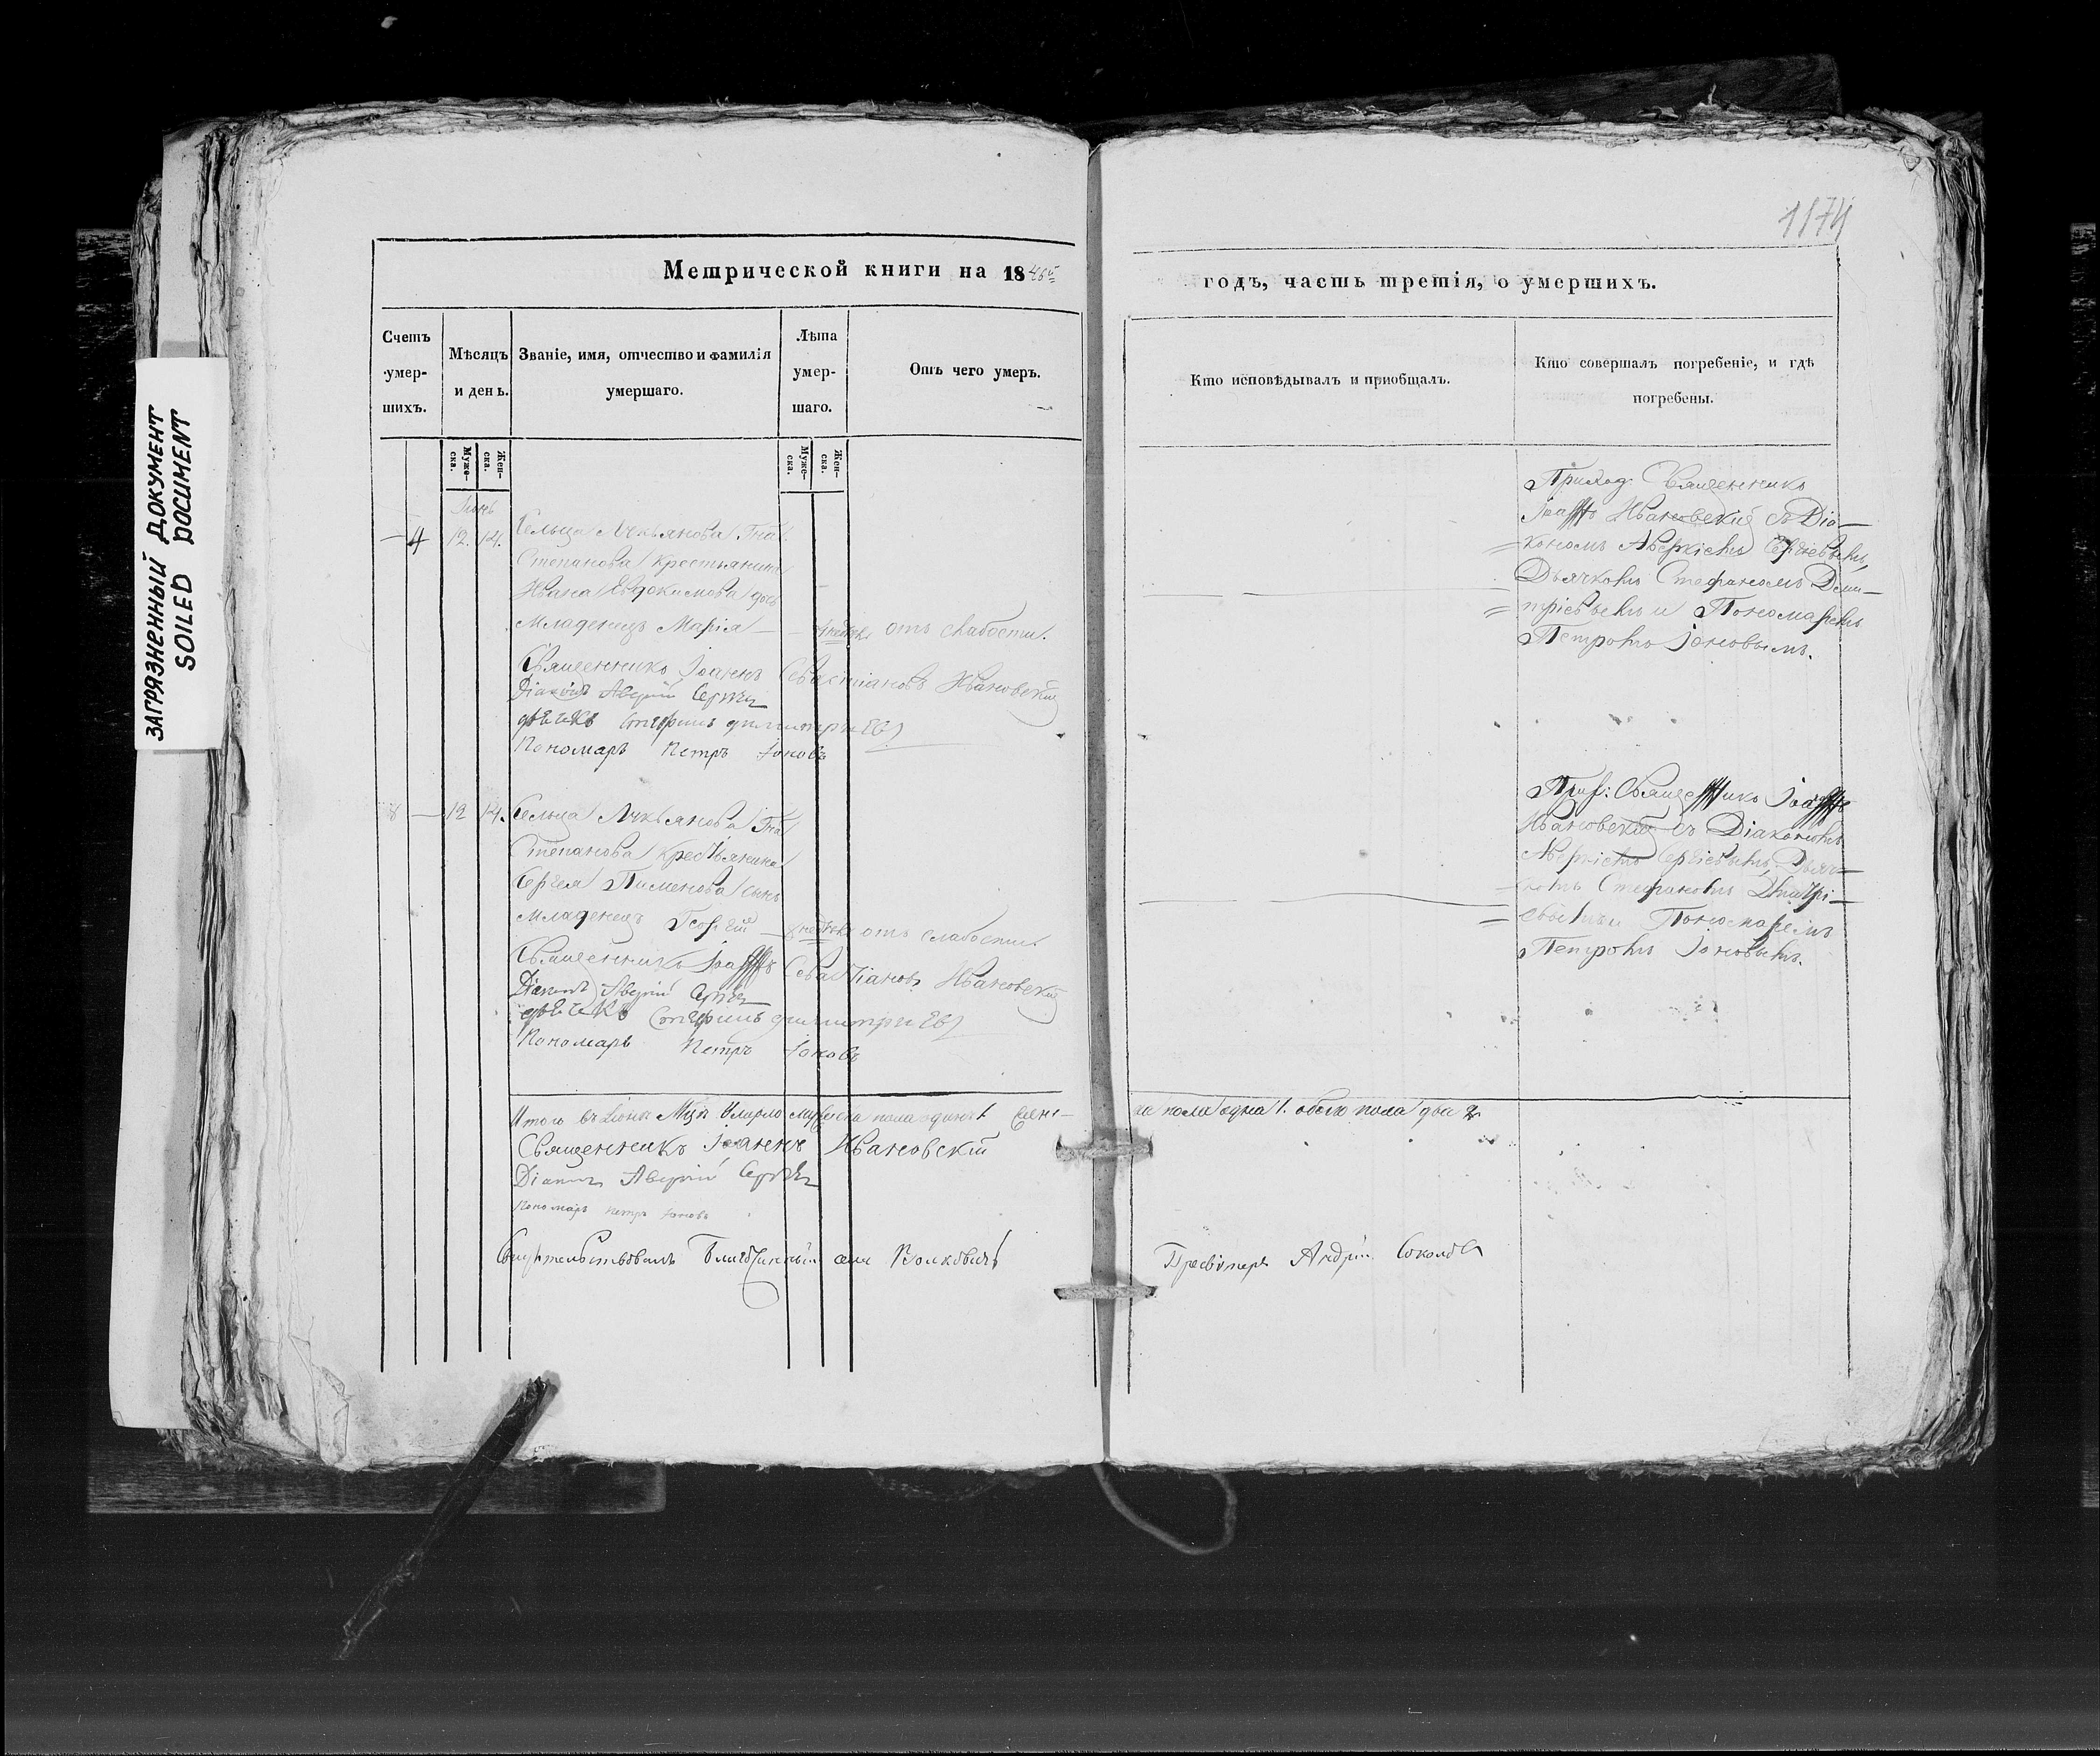 ЗАГРЯЗНЕННЫЙ ДОКУМЕНТ
SOILED DOCUMENT
1174
Метрической книги на 1846й
годъ, часть третія, о умершихъ.
Счетъ умер-шихъ.
Мѣсяцъ и день.
Званіе, имя, отчество и фамилія умершаго.
Лѣта умер-шаго.
Отъ чего умеръ.
Кто исповѣдывалъ и приобщалъ.
Кто совершалъ погребеніе, и гдѣ погребены.
Муже-ска.
Жен-ска.
Муже-ска.
Жен-ска.
Іюнь
4 12. 14. Сельца Лукьянова Гна
Степанова крестьянина
Ивана Евдокимова дочь
младенецъ Марія отъ слабости.
Священникъ Іоаннъ Севастіановъ Ивановскій
Діаконъ Аверкій Сергѣевъ
дьячекъ Стефанъ димитриевъ
Пономарь Петръ Іоновъ
Приход. Священникъ
Іоаннъ Ивановскій съ Діа-
кономъ Аверкіемъ Сергіевымъ,
Дьячкомъ Стефаномъ Дими-
тріевымъ и Пономаремъ
Петромъ Іоновымъ.
8 12 14. Сельца Лукьянова Гна
Степанова крестьянина
Сергея Пименова сынъ
младенецъ Георгій отъ слабости
Священникъ Іоаннъ Севастіановъ Ивановскій
Діаконъ Аверкій Сергѣевъ
дьячекъ Стефанъ димитриевъ
Пономарь Петръ Іоновъ
Прих: Священникъ Іоаннъ
Ивановскій съ Діакономъ
Аверкіемъ Сергіевымъ, Дьяч-
комъ Стефаномъ Дмитрі-
евымъ и Пономаремъ
Петромъ Іоновымъ.
Итого въ Іюнѣ Мцѣ умерло мужеска пола одинъ 1 женс-
ка пола одна 1. обоего пола два 2.
Священникъ Іоаннъ Ивановскій
Діаконъ Аверкій Сергѣевъ
Пономарь Петръ Іоновъ
Свидѣтельствовалъ Благочинный села
Пресвитеръ Андрей Соколовъ